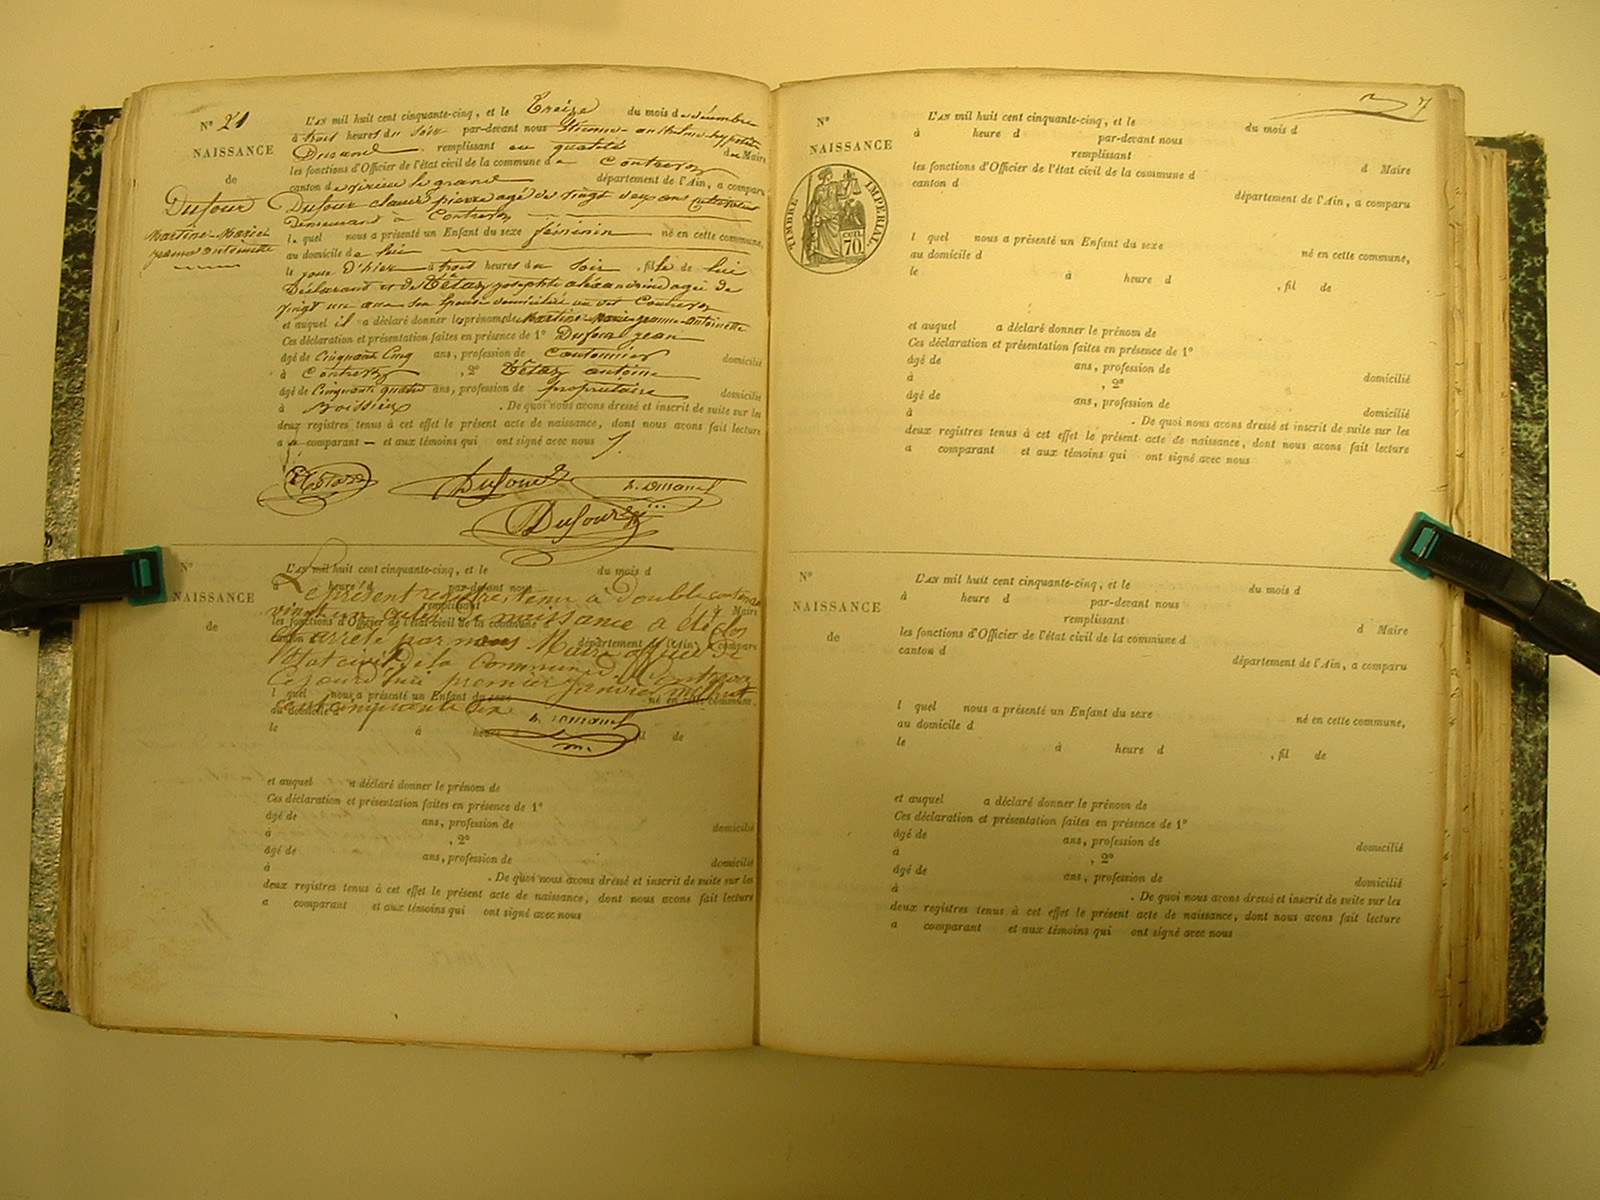 N° 21
NAISSANCE
de
Dufour
Martine-Marie
jeanne antoinette
L'AN mil huit cent cinquante-cinq, et le Treize du mois de décembre
à trois heures du soir par-devant nous Etienne-anthelme-hyppolite
Durand remplissant en qualité de Maire
les fonctions d'Officier de l'état civil de la commune de Contrevoz
canton de virieu le grand département de l'Ain, a comparu
Dufour claude pierre agé de vingt ans cultivateur
demeurant à Contrevoz
lequel nous a présenté un Enfant du sexe féminin né en cette commune,
au domicile de lui
le jour d'hier à trois heures du soir, fille de lui
Déclarant et de Tétaz josephte agée de
vingt un ans son épouse Contrevoz
et auquel il a déclaré donner les prénoms de Martine-Marie-jeanne-antoinette
Ces déclaration et présentation faites en présence de 1° Dufour jean
âgé de Cinquante Cinq ans, profession de Cantonnier domicilié
à Contrevoz, 2° Tétaz antoine
âgé de Cinquante quatre ans, profession de propriétaire domicilié
à . De quoi nous avons dressé et inscrit de suite sur les
deux registres tenus à cet effet le présent acte de naissance, dont nous avons fait lecture
au comparant et aux témoins qui ont signé avec nous
Dufour h. Durand
Dufour
N°
NAISSANCE
de
L'AN mil huit cent cinquante-cinq, et le du mois d
à heure d par-devant nous
remplissant d Maire
les fonctions d'Officier de l'état civil de la commune d
canton d département de l'Ain, a comparu
Le présent registre, tenu à Double contenant
vingt un actes de naissance a été clos
et arrêté par nous Maire officier de
l'état civil de la Commune de Contrevoz
Cejourd'hui premier janvier mil huit
cent cinquante six
l quel nous a présenté un Enfant du sexe né en cette commune,
au domicile d
h. Durand
m.
le à heure d , fil de
et auquel a déclaré donner le prénom de
Ces déclaration et présentation faites en présence de 1°
âgé de ans, profession de domicilié
à , 2°
âgé de ans, profession de domicilié
à . De quoi nous avons dressé et inscrit de suite sur les
deux registres tenus à cet effet le présent acte de naissance, dont nous avons fait lecture
a comparant et aux témoins qui ont signé avec nous
7
N°
NAISSANCE
TIMBRE IMPÉRIAL
CEN.
70
L'AN mil huit cent cinquante-cinq, et le du mois d
à heure d par-devant nous
remplissant d Maire
les fonctions d'Officier de l'état civil de la commune d
canton d département de l'Ain, a comparu
l quel nous a présenté un Enfant du sexe né en cette commune,
au domicile d
le à heure d , fil de
et auquel a déclaré donner le prénom de
Ces déclaration et présentation faites en présence de 1°
âgé de ans, profession de domicilié
à , 2°
âgé de ans, profession de domicilié
à . De quoi nous avons dressé et inscrit de suite sur les
deux registres tenus à cet effet le présent acte de naissance, dont nous avons fait lecture
a comparant et aux témoins qui ont signé avec nous
N°
NAISSANCE
de
L'AN mil huit cent cinquante-cinq, et le du mois d
à heure d par-devant nous
remplissant d Maire
les fonctions d'Officier de l'état civil de la commune d
canton d département de l'Ain, a comparu
l quel nous a présenté un Enfant du sexe né en cette commune,
au domicile d
le à heure d , fil de
et auquel a déclaré donner le prénom de
Ces déclaration et présentation faites en présence de 1°
âgé de ans, profession de domicilié
à , 2°
âgé de ans, profession de domicilié
à . De quoi nous avons dressé et inscrit de suite sur les
deux registres tenus à cet effet le présent acte de naissance, dont nous avons fait lecture
a comparant et aux témoins qui ont signé avec nous